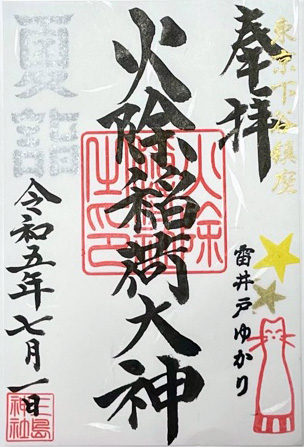 東京下谷鎮座
奉拝
雷井戸ゆかり
火除稲荷大神
火除稲荷之印
夏詣
令和五年七月一日
三島神社